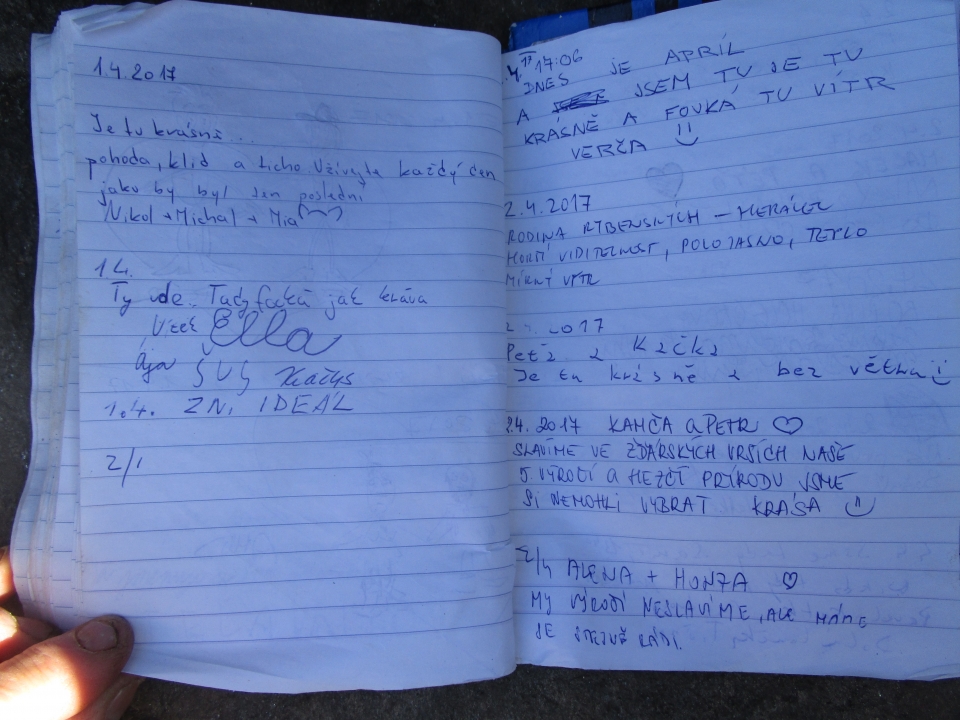 1.4.2017
Je tu krásně...
pohoda, klid a ticho. Užívejte každý den
jako by byl ten poslední
Nikol + Michal + Mia
1.4.
Ty vde.. Tady fouká jak kráva
Vítek Ella
Ája
1.4. ZN. IDEÁL
2/
4. 17 17:06
DNES JE APRÍL
A JSEM TU JE TU
KRÁSNĚ A FOUKÁ TU VÍTR
VERČA
2.4.2017
RODINA RYBENSKÝCH – HERÁLEC
HORŠÍ VIDITELNOST, POLOJASNO, TEPLO
MÍRNÝ VÍTR
2 2017
Peťa a Kačka
Je tu krásně a bez větru
2.4. 2017 KAMČA a PETR
SLAVÍME VE ŽĎÁRSKÝCH VRŠÍCH NAŠE
5. VÝROČÍ A HEZČÍ PŘÍRODU JSME
SI NEMOHLI VYBRAT KRÁSA
2/4 ALENA + HONZA
MY VÝROČÍ NESLAVÍME, ALE MÁME
SE STEJNĚ RÁDI.